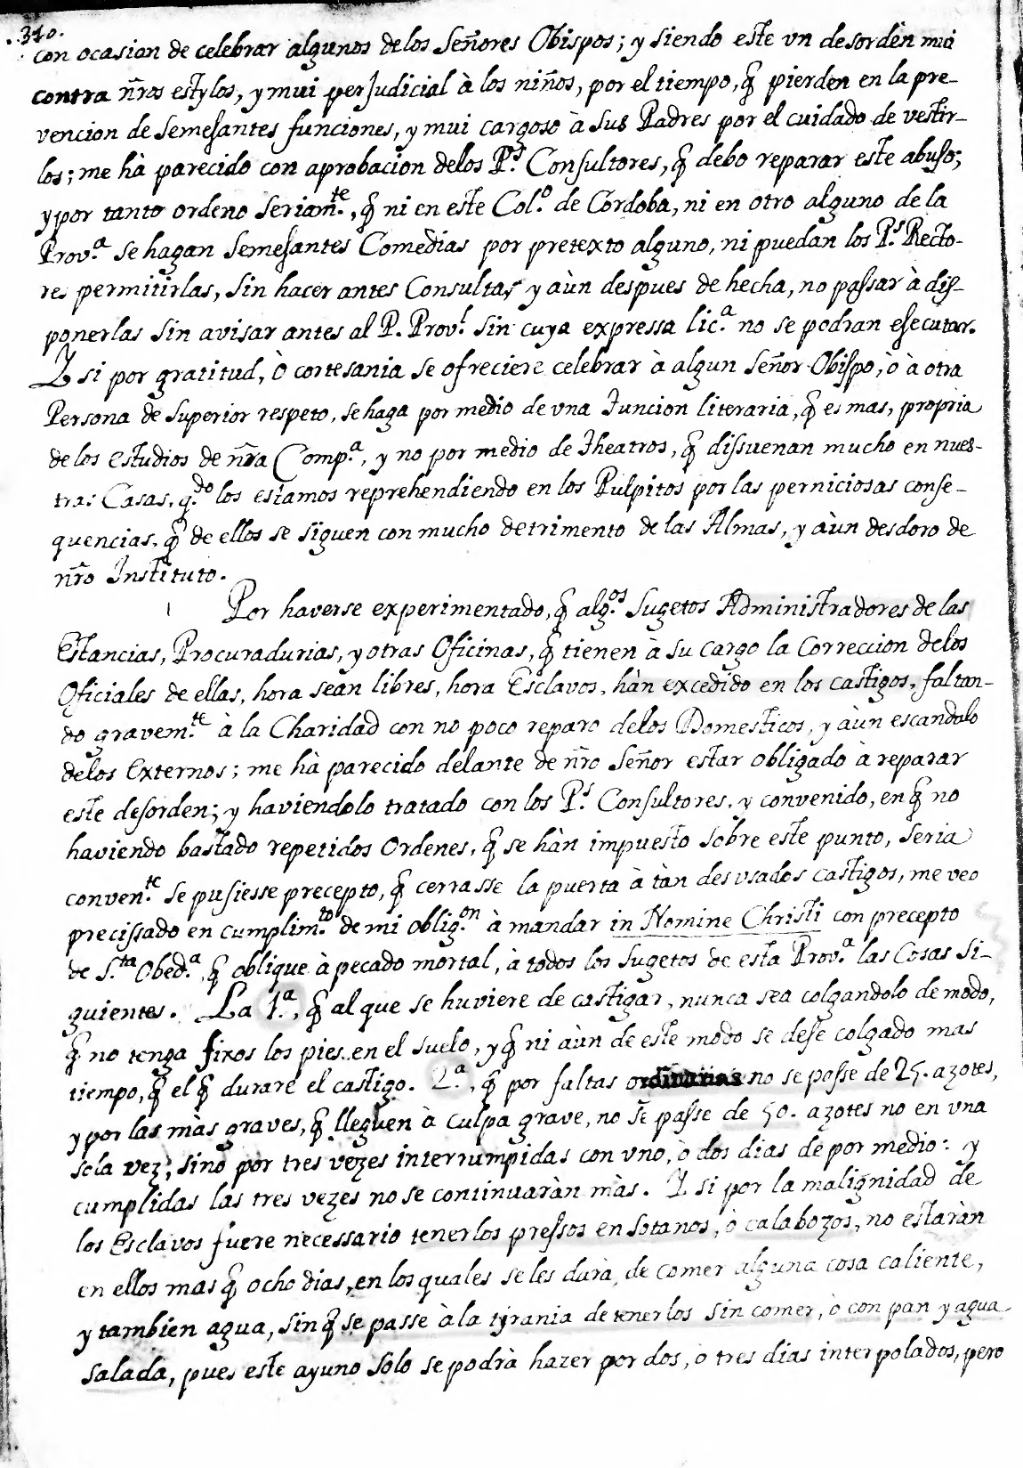 310.
con ocasion de celebrar algunos delos Señores Obispos; y siendo este vn desordèn mui
contra ñros estylos, y mui perJudicial à los niños, por el tiempo, q̃ pierden en la pre-
vencion de semeſantes funciones, y mui cargoso à sus Padres por el cuidado de vestir-
los; me hà parecido con aprobacion delos P.s Consultores, q̃ debo reparar este abuso;
y por tanto ordeno seriam.te, q̃ ni en este Col.o de Cordoba, ni en otro alguno de la
Prov.a se hagan semeſantes Comedias por pretexto alguno, ni puedan los P.s Recto-
res permitirlas, sin hacer antes Consulta, y aùn despues de hecha, no passar à dis-
ponerlas sin avisar antes al P. Prov.l sin cuya expressa lic.a no se podran eſecutar.
Y si por gratitud, ò cortesania se ofreciere celebrar à algun Señor Obispo, ò à otra
Persona de superior respeto, se haga por medio de vna funcion literaria, q̃ es mas, propria
de los estudios de ñra Comp.a, y no por medio de Theatros, q̃ dissuenan mucho en nues-
tras Casas, q.do los estamos reprehendiendo en los Pulpitos por las perniciosas conse-
quencias, q̃ de ellos se siguen con mucho detrimento de las Almas, y aùn desdoro de
ñro Instituto.
Por haverse experimentado, q̃ alg.os Sugetos Administradores de las
Estancias, Procuradurias, y otras Oficinas, q̃ tienen à su cargo la Correccion delos
Oficiales de ellas, hora sean libres, hora Esclavos, hàn excedido en los castigos, faltan-
do gravem.te à la Charidad con no poco reparo delos Domesticos, y aùn escandalo
delos Externos; me hà parecido delante de ñro Señor estar obligado à reparar
este desorden; y haviendolo tratado con los P.s Consultores, y convenido, en q̃ no
haviendo bastado repetidos Ordenes, q̃ se hàn impuesto sobre este punto, seria
conven.te se pusiesse precepto, q̃ cerrasse la puerta à tàn desusados castigos, me veo
precissado en cumplim.to de mi oblig.on à mandar in Nomine Christi con precepto
de S.ta Obed.a q̃ oblique à pecado mortal, à todos los sugetos de esta Prov.a las Cosas si-
guientes. La 1.a, q̃ al que se huviere de castigar, nunca sea colgandolo de modo,
q̃ no tenga fixos los pies en el suelo, y q̃ ni aùn de este modo se deſe colgado mas
tiempo, q̃ el q̃ durare el castigo. 2.a, q̃ por faltas ordinarias no se passe de 25. azotes,
y por las màs graves, q̃ lleguen à culpa grave, no se passe de 50. azotes no en vna
sola vez; sino por tres vezes interrumpidas con vno, ò dos dias de por medio: y
cumplidas las tres vezes no se continuaràn màs. Y si por la malignidad de
los Esclavos fuere necessario tenerlos pressos en sotanos, ò calabozos, no estaràn
en ellos mas q̃ ocho dias, en los quales se les darà de comer alguna cosa caliente,
y tambien agua, sin q̃ se passe à la tyrania de tenerlos sin comer, ò con pan y agua
salada, pues este ayuno solo se podrà hazer por dos, o tres dias interpolados, pero